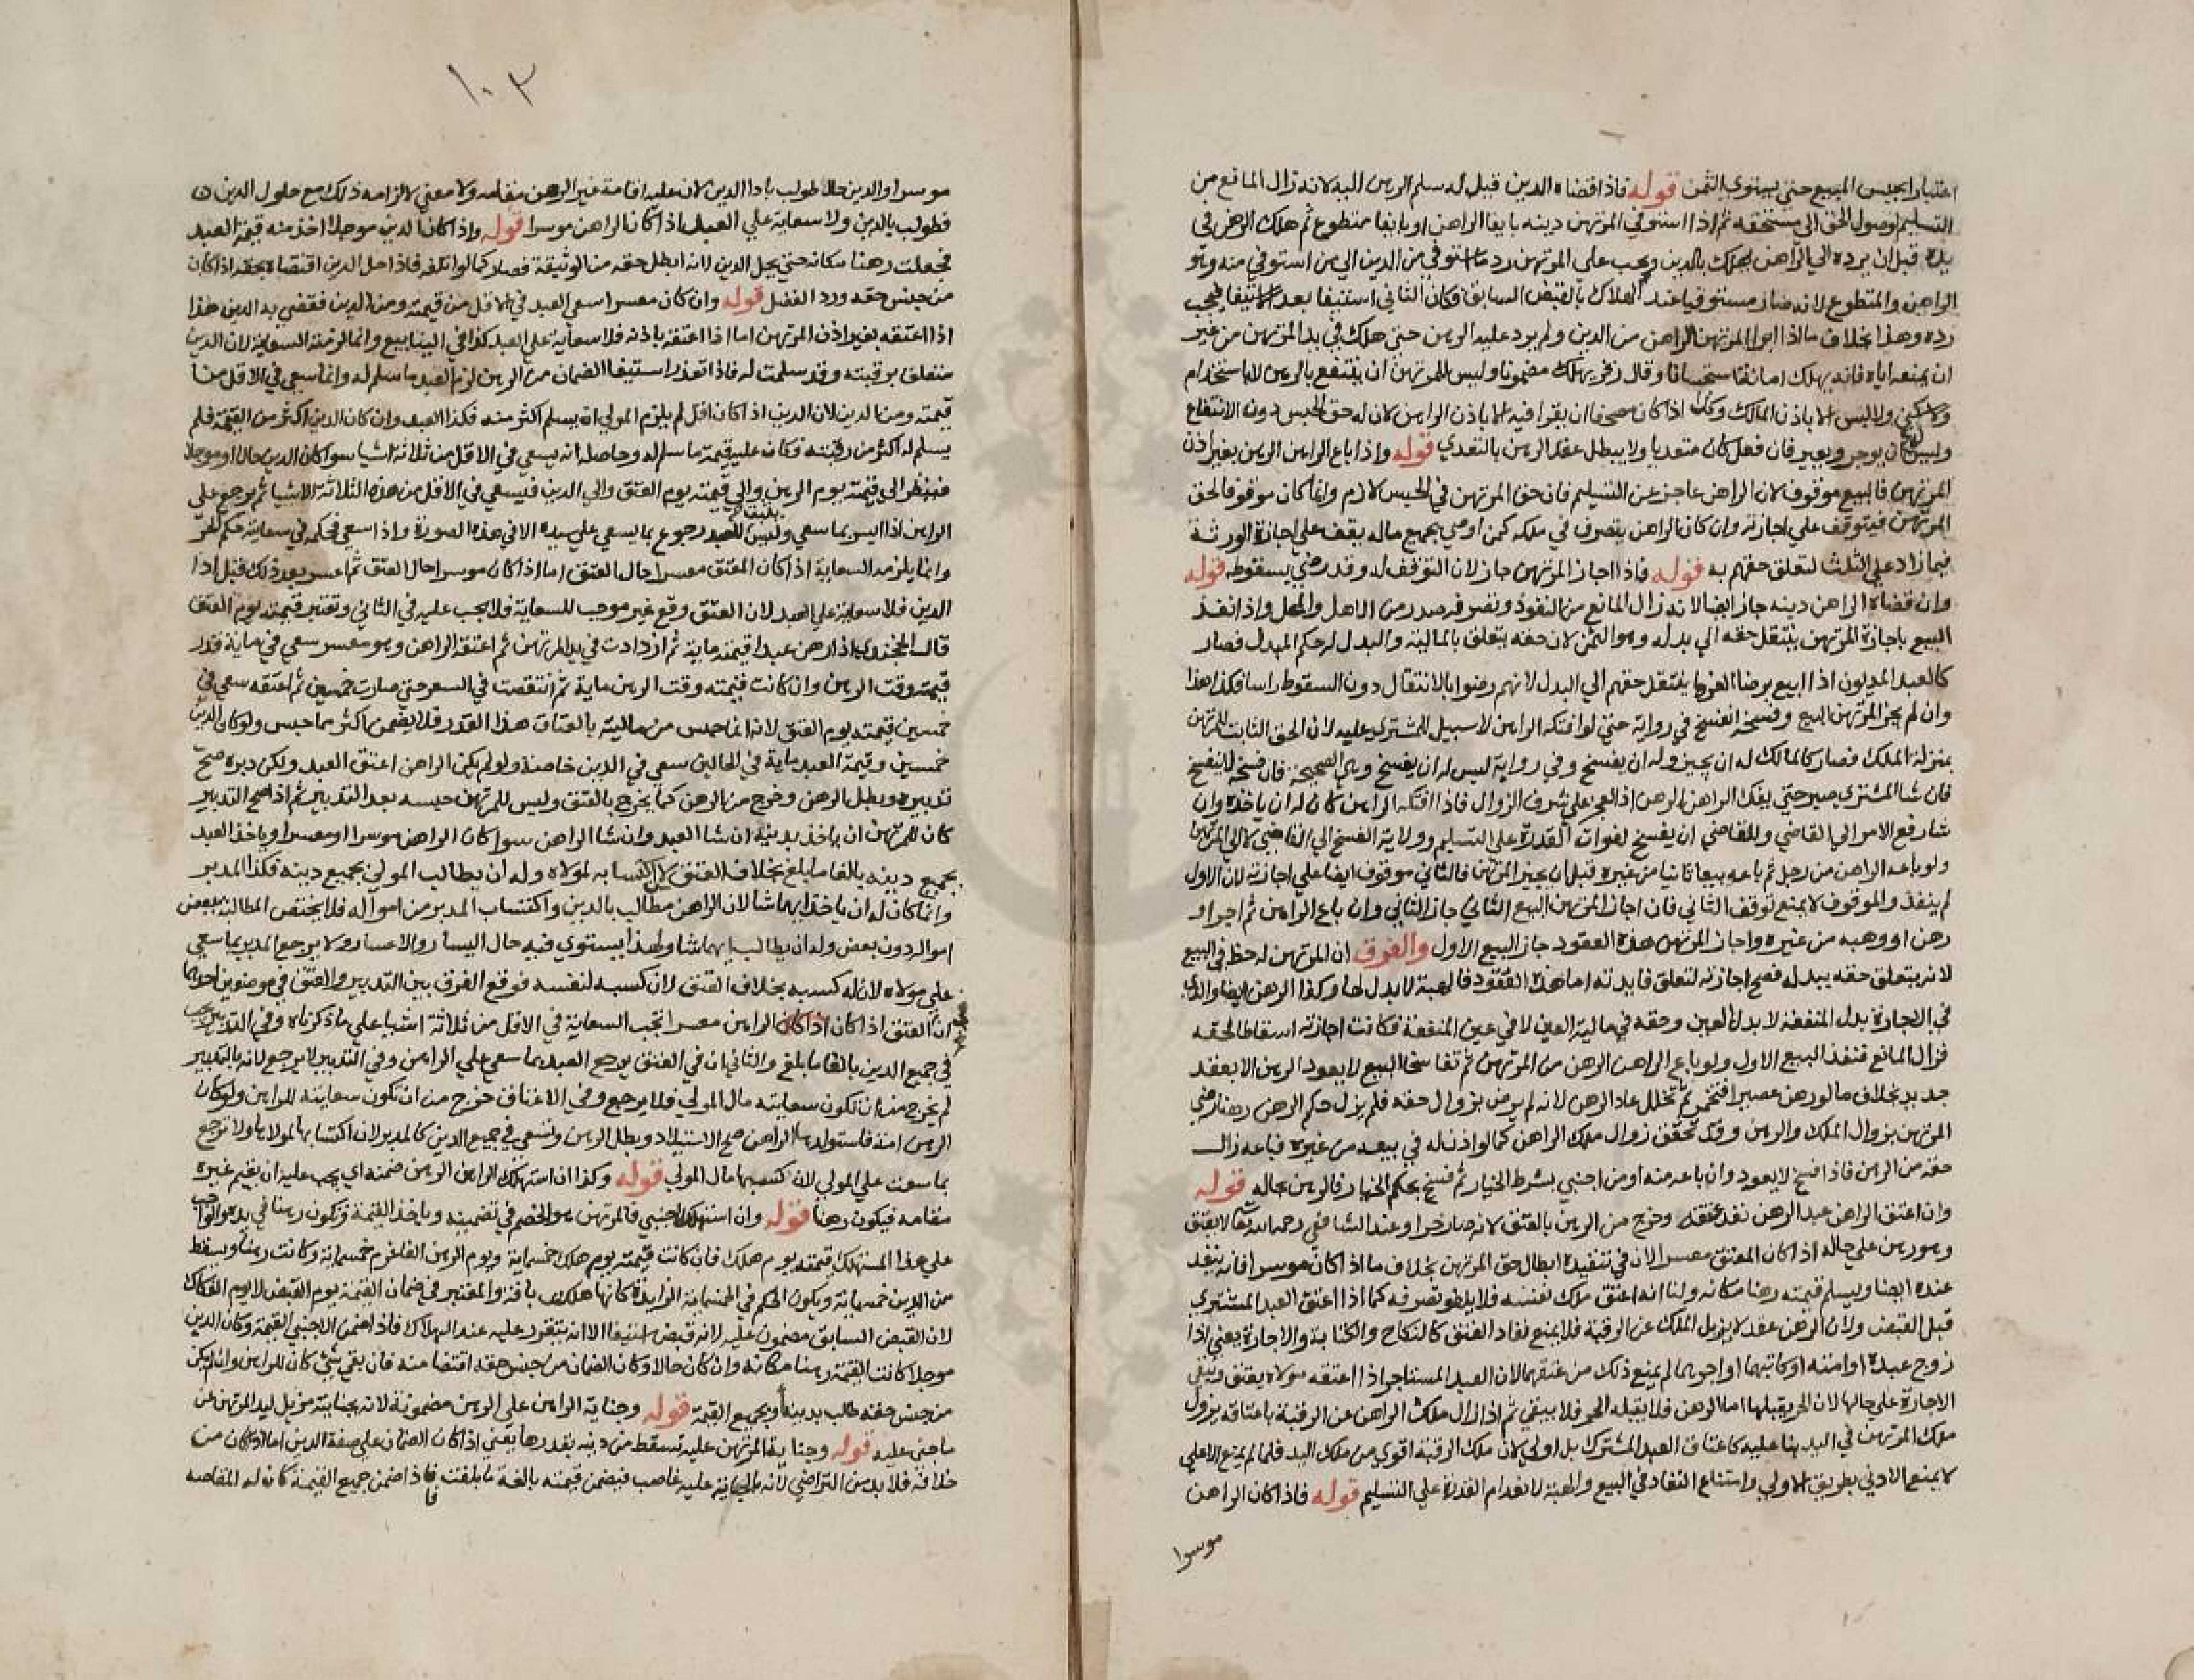 اعتبارا بحبس المبيع حتى يستوفي الثمن قوله فاذا قضاه الدين قيل له سلم الرهن اليه لانه زال المانع من
التسليم لوصول الحق الى مستحقه ثم اذا استوفي المرتهن دينه بايفا الراهن او بايفا متطوع ثم هلك الرهن في
يده قبل ان يرده الي الراهن يهلك بالدين ويجب على المرتهن رد ما استوفي من الدين الي من استوفي منه وهو
الراهن والمتطوع لانه صار مستوفيا عند الهلاك بالقبض السابق فكان الثاني استيفا بعد استيفا فيجب
رده وهذا بخلاف ما اذا ابرا المرتهن الراهن من الدين ولم يرد عليه الرهن حتى هلك في يد المرتهن من غير
ان يمنعه اياه فانه يهلك امانة استحسانا وقال زفر يهلك مضمونا وليس للمرتهن ان ينتفع بالرهن لا باستخدام
ولا سكني ولا لبس الا باذن المالك وكذا اذا كان مصحفا ان يقرا فيه الا باذن الراهن لان له حق الحبس دون الانتفاع
وليس له ان يوجر ويعير فان فعل كان متعديا ولا يبطل عقد الرهن بالتعدي قوله واذا باع الراهن الرهن بغير اذن
المرتهن فالبيع موقوف لان الراهن عاجز عن التسليم فان حق المرتهن في الحبس لازم وانما كان موقوفا لحق
المرتهن فيتوقف علي اجازته وان كان الراهن يتصرف في ملكه كمن اوصي بجميع ماله يقف على اجازة الورثة
فيما زاد علي الثلث لتعلق حقهم به قوله فاذا اجاز المرتهن جاز لان التوقف له وقد رضي بسقوطه قوله
وان قضاه الراهن دينه جاز ايضا لانه زال المانع من النفوذ وتصرفه صدر من الاهل والمحل واذا نفذ
البيع باجازة المرتهن ينتقل حقه الي بدله وهو الثمن لان حقه يتعلق بالمالية والبدل له حكم المبدل فصار
كالعبد المديون اذا بيع برضا الغرما ينتقل حقهم الي البدل لانهم رضوا بالانتقال دون السقوط راسا فكذا هذا
وان لم يجز المرتهن البيع وفسخه انفسخ في رواية حتى لو افتكه الراهن لا سبيل للمشتري عليه لان الحق الثابت للمرتهن
بمنزلة الملك فصار كالمالك له ان يجيز وله ان يفسخ وفي رواية ليس له ان يفسخ وهي الصحيحة فان فسخه لا ينفسخ
فان شا المشتري صبر حتي يفك الراهن الرهن اذ العجز على شرف الزوال فاذا افتكه الراهن كان له ان ياخذه وان
شا رفع الامر الي القاضي وللقاضي ان يفسخ لفوات القدرة على التسليم وولاية الفسخ الي القاضي لا الي المرتهن
ولو باعه الراهن من رجل ثم باعه بيعا ثانيا من غيره قبل ان يجيز المرتهن فالثاني موقوف ايضا علي اجازته لان الاول
لم ينفذ والموقوف لا يمنع توقف الثاني فان اجاز المرتهن البيع الثاني جاز الثاني وان باع الراهن ثم اجر او
رهن او وهبه من غيره واجاز المرتهن هذه العقود جاز البيع الاول والفرق ان المرتهن له حظ في البيع
لانه يتعلق حقه ببدله فصح اجازته لتعلق فايدته اما هذه العقود فالهبة لا بدل لها وكذا الرهن ايضا والذي
في الاجارة بدل المنفعة لا بدل العين وحقه في مالية العين لا في عين المنفعة فكانت اجازته اسقاطا لحقه
فزال المانع فنفذ البيع الاول ولو باع الراهن الرهن من المرتهن ثم تفاسخا البيع لا يعود الرهن الا بعقد
جديد بخلاف ما لو رهن عصيرا فتخمر ثم تخلل عاد الرهن لانه لم يرض بزوال حقه فلم يزل حكم الرهن وهنا رضي
المرتهن بزوال الملك والرهن وقد تحقق زوال ملك الراهن كما لو اذن له في بيعه من غيره فباعه زال
حقه من الرهن فاذا فسخ لا يعود وان باعه منه او من اجنبي بشرط الخيار ثم فسخ بحكم الخيار فالرهن بحاله قوله
وان اعتق الراهن عبد الرهن نفذ عتقه وخرج من الرهن بالعتق لانه صار حرا وعند الشافعي رحمه الله تعالى لا يعتق
وهو رهن علي حاله اذا كان المعتق معسرا لان في تنفيذه ابطال حق المرتهن بخلاف ما اذا كان موسرا فانه ينفذ
عنده ايضا ويسلم قيمته رهنا مكانه ولنا انه اعتق ملك نفسه فلا يلغو تصرفه كما اذا اعتق العبد المشتري
قبل القبض ولان الرهن عقد لا يزيل الملك عن الرقبة فلا يمنع نفاد العتق كالنكاح والكتابة والاجارة يعني اذا
زوج عبده او امته او كاتبهما او اجرهما لم يمنع ذلك من عتقهما لان العبد المستاجر اذا اعتقه مولاه يعتق وتبقي
الاجارة علي حالها لان الحر يقبلها اما الرهن فلا يقبله الحر فلا يبقي ثم اذا زال ملك الراهن عن الرقبة باعتاقه يزول
ملك المرتهن في اليد بنا عليه كاعتاق العبد المشترك بل اولي لان ملك الرقبة اقوي من ملك اليد فلما لم يمنع الاعلي
لا يمنع الادني بطريق الاولي وامتناع النفاذ في البيع والهبة لانعدام القدرة علي التسليم قوله فاذا كان الراهن
موسرا
١٠٣
موسرا والدين حالا طولب بادا الدين لان عليه اقامة غير الرهن مقامه ولا معني لالزامه ذلك مع حلول الدين
فطولب بالدين ولا سعاية علي العبد اذا كان الراهن موسرا قوله واذا كان الدين موجلا اخذ منه قيمة العبد
فجعلت رهنا مكانه حتي يحل الدين لانه ابطل حقه من الوثيقة فصار كما لو اتلفه فاذا حل الدين اقتضاه بحقه اذا كان
من جنس حقه ورد الفضل قوله وان كان معسرا سعي العبد في الاقل من قيمته ومن الدين فقضي به الدين هذا
اذا اعتقه بغير اذن المرتهن اما اذا اعتقه باذنه فلا سعاية علي العبد كذا في الينابيع وانما لزمته السعاية لان الدين
متعلق برقبته وقد سلمت له فاذا تعذر استيفا الضمان من الراهن لزم العبد ما سلم له وانما سعي في الاقل من
قيمته ومن الدين لان الدين اذا كان اقل لم يلزم المولي ان يسلم اكثر منه فكذا العبد وان كان الدين اكثر من القيمة فلم
يسلم له اكثر من رقبته فكان عليه قيمة ما سلم له وحاصله انه يسعي في الاقل من ثلاثة اشيا سوا كان الدين حالا او موجلا
فينظر الي قيمته يوم الرهن والي قيمته يوم العتق والي الدين فيسعي في الاقل من هذه الثلاثة الاشيا ثم يرجع علي
الراهن اذا ايسر بما سعي وليس للعبد رجوع بما يسعي علي سيده الا في هذه الصورة واذا سعي فحكمه في سعايته حكم الحر
وانما يلزمه السعاية اذا كان المعتق معسرا حال العتق اما اذا كان موسرا حال العتق ثم اعسر بعد ذلك قبل ادا
الدين فلا سعاية علي العبد لان العتق وقع غير موجب للسعاية فلا يجب عليه في الثاني وتعتبر قيمته يوم العتق
قال الخجندي اذا رهن عبدا قيمته ماية ثم ازدادت في يد المرتهن ثم اعتقه الراهن وهو معسر سعي في ماية قدر
قيمته وقت الرهن وان كانت قيمته وقت الرهن ماية ثم انتقصت في السعر حتي صارت خمسين ثم اعتقه سعي في
خمسين قيمته يوم العتق لانه انما حبس من ماليته بالعتاق هذا القدر فلا يضمن اكثر مما حبس ولو كان الدين
خمسين وقيمة العبد ماية في الحالين سعي في الدين خاصة ولو لم يكن الراهن اعتق العبد ولكن دبره صح
تدبيره وبطل الرهن وخرج من الرهن كما يخرج بالعتق وليس للمرتهن حبسه بعد التدبير ثم اذا صح التدبير
كان للمرتهن ان ياخذ بدينه ان شا العبد وان شا الراهن سوا كان الراهن موسرا او معسرا وياخذ العبد
بجميع دينه بالغا ما بلغ بخلاف العتق لان اكتسابه لمولاه وله ان يطالب المولي بجميع دينه فكذا المدبر
وانما كان له ان ياخذ ايهما شا لان الراهن مطالب بالدين واكتساب المدبر من امواله فلا يختص المطالبة ببعض
امواله دون بعض وله ان يطالب ايهما شا ولهذا يستوي فيه حال اليسار والاعسار ولا يرجع المدبر بما سعي
علي مولاه لانه له كسبه بخلاف العتق لان كسبه لنفسه فوقع الفرق بين التدبير والعتق في موضعين احدهما
ان العتق اذا كان الراهن معسرا تجب السعاية في الاقل من ثلاثة اشيا علي ما ذكرناه وفي التدبير
في جميع الدين بالغا ما بلغ والثاني ان في العتق يرجع العبد بما سعي علي الراهن وفي التدبير لا يرجع لانه بالتدبير
لم يخرج من ان تكون سعايته مال المولي فلا يرجع وفي الاعتاق خرج من ان تكون سعايته للراهن ولو كان
الرهن امة فاستولدها الراهن صح الاستيلاد وبطل الرهن وتسعي في جميع الدين كالمدبر لان اكتسابها لمولاها ولا ترجع
بما سعت علي المولي لان كسبها مال المولي قوله وكذا ان استهلك الراهن الرهن ضمنه اي يجب عليه ان يقيم غيره
مقامه فيكون رهنا قوله وان استهلكه اجنبي فالمرتهن هو الخصم في تضمينه وياخذ القيمة وتكون رهنا في يده والواجب
علي هذا المستهلك قيمته يوم هلك فان كانت قيمته يوم هلك خمسماية ويوم الرهن الفا غرم خمسماية وكانت رهنا ويسقط
من الدين خمسماية ويكون الحكم في الخمسماية الزايدة كانها هلكت بافة والمعتبر في ضمان القيمة يوم القبض لا يوم الفكاك
لان القبض السابق مضمون عليه لانه قبض استيفا الا انه يتقرر عليه عند الهلاك فاذا ضمن الاجنبي القيمة وكان الدين
موجلا كانت القيمة رهنا مكانه وان كان حالا وكان الضمان من جنس حقه اقتضا منه فان بقي شي كان للراهن وان لم يكن
من جنس حقه طلب بدينه وبجميع القيمة قوله وجناية الراهن على الرهن مضمونة لانه بجنايته مزيل ليد المرتهن عن
ما جنى عليه قوله وجناية المرتهن عليه تسقط من دينه بقدرها يعني اذا كان الضمان على صفة الدين اما اذا كان من
خلافه فلا بد من التراضي لانه بالجناية عليه غاصب فيضمن قيمته بالغة ما بلغت فاذا ضمن جميع القيمة كان له المقاصة